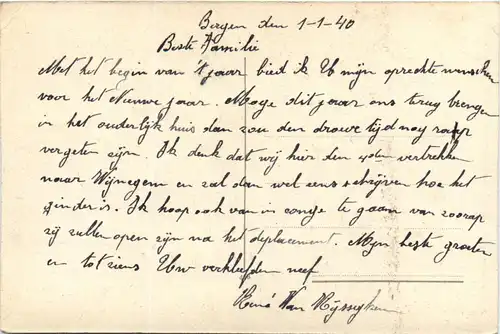 Bergen den 1-1-40
Beste Familie
Met het begin van 't jaar bied ik U mijn oprechte wenschen
voor het Nieuwe jaar. Moge dit jaar ons terug brengen
in het ouderlijk huis dan zou den droeve tijd nog rap
vergeten zijn. Ik denk dat wij hier den 4den vertrekken
naar Wijnegem en zal dan wel eens schrijven hoe het
ginder is. Ik hoop ook van in congé te gaan van zoorap
zij zullen open zijn na het deplacement. Mijn beste groeten
en tot ziens Uw verkleefden neef
René Van